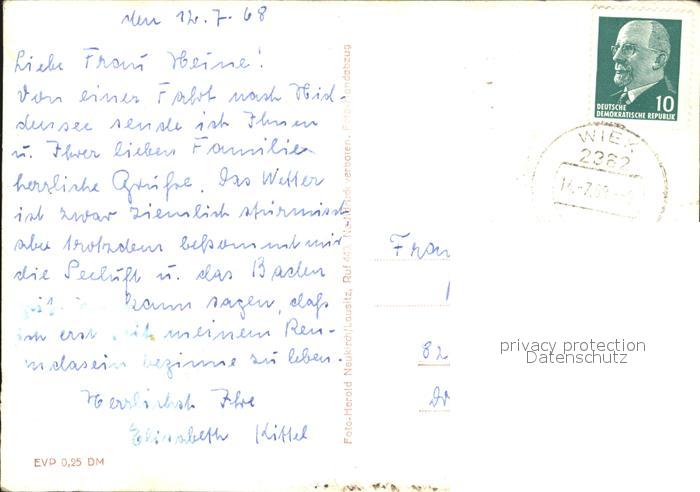 den 12.7.68
Liebe Frau Heine!
Von einer Fahrt nach Hid-
densee sende ich Ihnen
u. Ihrer lieben Familie
herzliche Grüße. Das Wetter
ist zwar ziemlich stürmisch
aber trotzdem bekommt mir
die Seeluft u. das Baden
gut. kann sagen, daß
ich erst seit meinem Ren-
nerdasein beginne zu leben.
Herzlichst Ihre
Elisabeth Kittel
EVP 0,25 DM
Foto-Herold Neukirch/Lausitz, Ruf 443 Nachdruck verboten. Foto Handabzug
DEUTSCHE
DEMOKRATISCHE REPUBLIK
10
WIEK
2382
Frau
82
privacy protection
Datenschutz